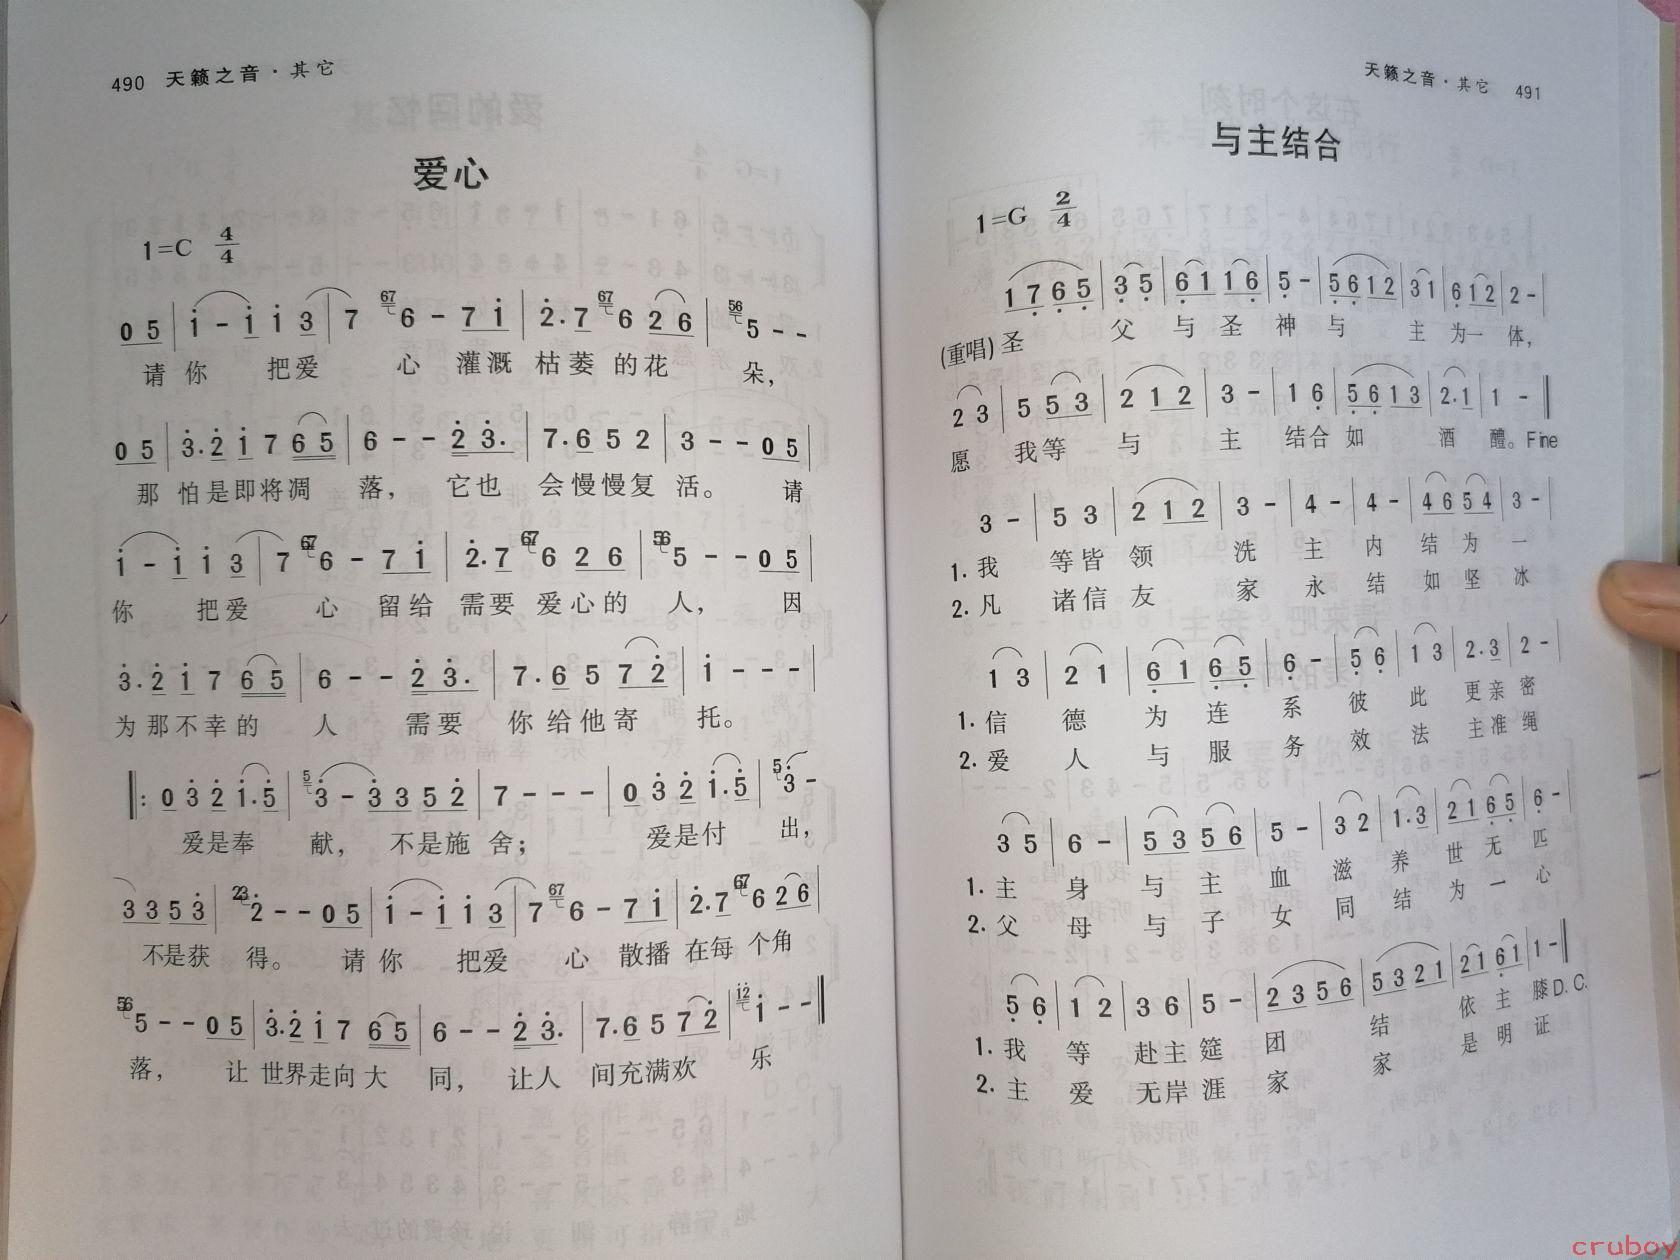 490 天籁之音·其它
爱心
1=C 4/4
0 5 | i - i i 3 | 7 67 6 - 7 i | 2. 7 67 6 2 6 | 56 5 - -
请 你 把爱 心 灌溉 枯萎 的花 朵，
0 5 | 3. 2 i 7 6 5 | 6 - - 2 3. | 7. 6 5 2 | 3 - - 0 5 |
那 怕是即将凋 落， 它也 会慢慢复 活。 请
i - i i 3 | 7 67 6 - 7 i | 2. 7 67 6 2 6 | 56 5 - - 0 5 |
你 把爱 心 留给 需要 爱心的 人， 因
3. 2 i 7 6 5 | 6 - - 2 3. | 7. 6 5 7 2 | i - - - |
为那不幸的 人 需要 你给他寄 托。
‖: 0 3 2 i. 5 | 5 3 - 3 3 5 2 | 7 - - - | 0 3 2 i. 5 | 5 3 -
爱是奉 献， 不是施 舍； 爱是付 出，
3 3 5 3 | 23 2 - - 0 5 | i - i i 3 | 7 67 6 - 7 i | 2. 7 67 6 2 6 |
不是获 得。 请 你 把爱 心 散播 在每 个角
56 5 - - 0 5 | 3. 2 i 7 6 5 | 6 - - 2 3. | 7. 6 5 7 2 | i2 i - - ‖
落， 让 世界走向大 同， 让人 间充满欢 乐
天籁之音·其它 491
与主结合
1=G 2/4
1 7 6 5 | 3 5 | 6 1 1 6 | 5 - | 5 6 1 2 | 3 1 | 6 1 2 | 2 - |
(重唱)圣 父 与 圣 神 与 主 为一 体，
2 3 | 5 5 3 | 2 1 2 | 3 - | 1 6 | 5 6 1 3 | 2. 1 | 1 - ‖
愿 我等 与 主 结合 如 酒 醴。Fine
3 - | 5 3 | 2 1 2 | 3 - | 4 - | 4 - | 4 6 5 4 | 3 - |
1. 我 等皆 领 洗 主 内 结 为 一
2. 凡 诸信 友 家 永 结 如 坚 冰
1 3 | 2 1 | 6 1 6 5 | 6 - | 5 6 | 1 3 | 2. 3 | 2 - |
1. 信 德 为 连 系 彼 此 更亲 密
2. 爱 人 与 服 务 效 法 主准 绳
3 5 | 6 - | 5 3 5 6 | 5 - | 3 2 | 1. 3 | 2 1 6 5 | 6 - |
1. 主 身 与 主 血 滋 养 世 无 匹
2. 父 母 与 子 女 同 结 为 一 心
5 6 | 1 2 | 3 6 | 5 - | 2 3 5 6 | 5 3 2 1 | 2 1 6 1 | 1 - ‖
1. 我 等 赴主 筵 团 结 依 主 膝D.C.
2. 主 爱 无岸 涯 家 家 是 明 证
cruboy